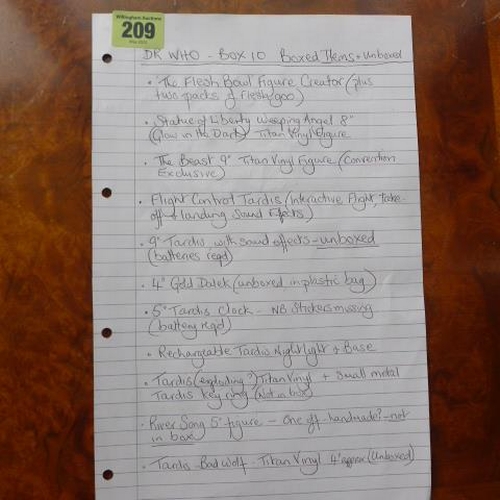 Willingham Auctions
209
DR WHO - BOX 10 Boxed Items + Unboxed
• The Flesh Bowl Figure Creator (plus
two packs of flesh goo)
• Statue of Liberty Weeping Angel 8"
(Glow in the Dark) Titan Vinyl Figure
• The Beast 9" Titan Vinyl Figure (Convention
Exclusive)
• Flight Control Tardis (interactive Flight, take-
off + landing Sound Effects)
• 9" Tardis, with sound effects - unboxed
(batteries reqd)
• 4" Gold Dalek (unboxed in plastic bag)
• 5" Tardis Clock - NB Stickers missing
(battery reqd)
• Rechargeable Tardis Nightlight + Base
• Tardis (exploding?) Titan Vinyl + Small metal
Tardis key ring (Not in box)
• River Song 5" figure - One off - handmade? - not
in box
• Tardis - Bad Wolf - Titan Vinyl 4" approx (Unboxed)